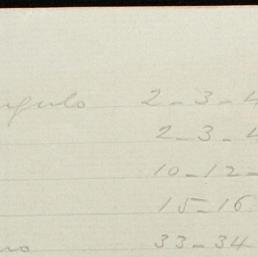 ngulo 2-3-4
2-3-4
10-12-
15-16
33-34